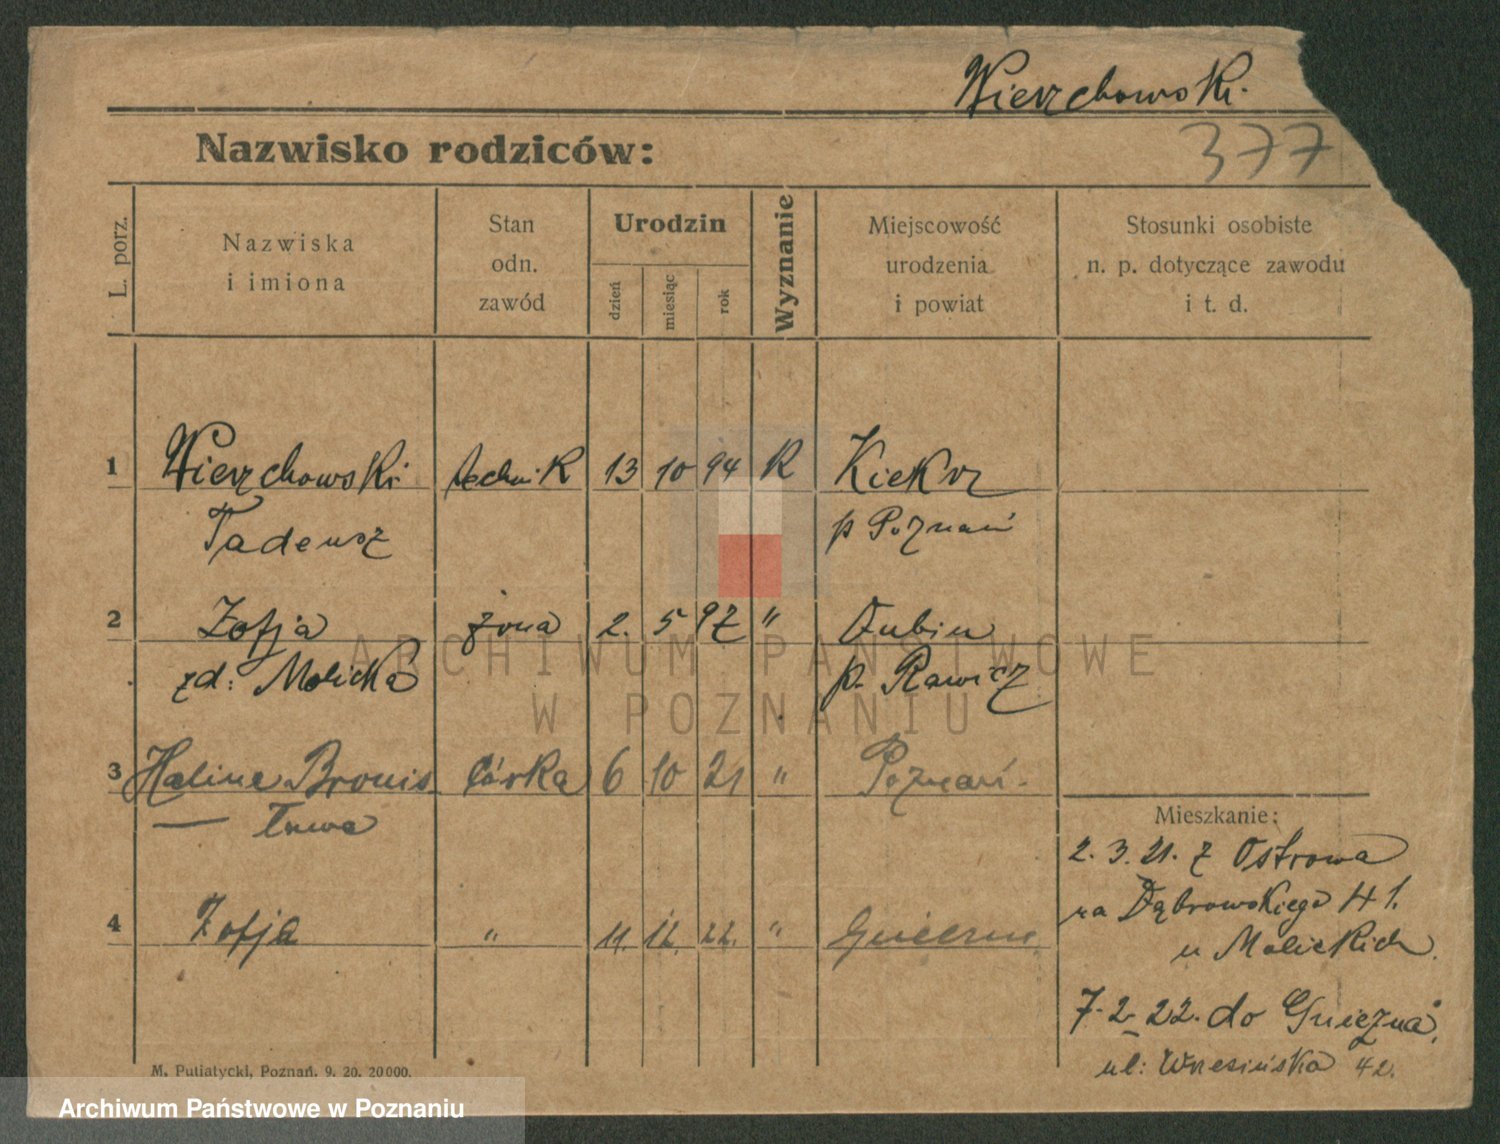 Wierzchowski.
Nazwisko rodziców:
377
L. porz.
Nazwiska
i imiona
Stan
odn.
zawód
Urodzin
dzień
miesiąc
rok
Wyznanie
Miejscowość
urodzenia
i powiat
Stosunki osobiste
n. p. dotyczące zawodu
i t. d.
1 Wierzchowski technik 13 10 94 K Kiekrz
Tadeusz p Poznań
2 Zofja żona 2. 5 97 " Dubin
zd: Molicka p. Rawicz
3 Halina Bronis córka 6 10 21 " Poznań.
— ława
4 Zofja " 11. 12. 22. " Gniezno
Mieszkanie:
2. 3. 21. z Ostrowa
na Dąbrowskiego 41.
u Molickich.
7-2-22. do Gniezna,
ul: Wrzesińska 42.
M. Putiatycki, Poznań. 9. 20. 20000.
ARCHIWUM PAŃSTWOWE
W POZNANIU
Archiwum Państwowe w Poznaniu